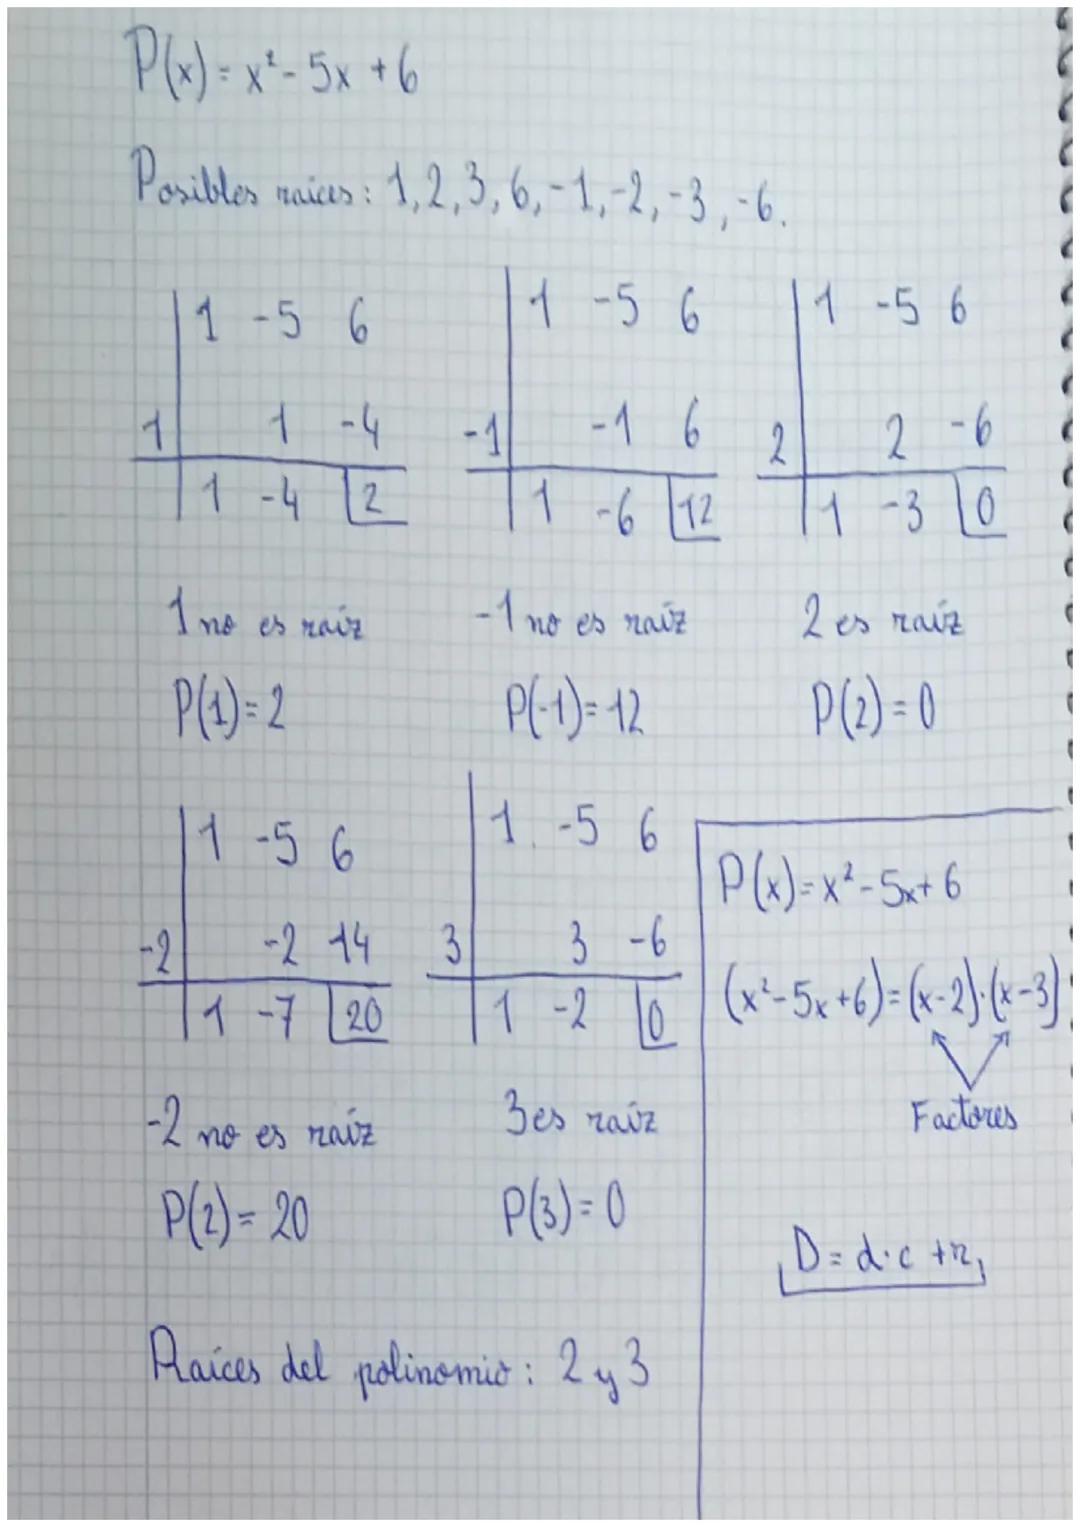 P(x) = x² - 5x + 6
Posibles raices: 1, 2, 3, 6, -1, -2, -3, -6.
1 -5 6
1 1 -4
1 -4 2
1 no es raíz
P(1) = 2
1 -5 6
-1 -1 6
1 -6 12
-1 no es raíz
P(-1) = 12
1 -5 6
2 2 -6
1 -3 0
2 es raíz
P(2) = 0
1 -5 6
-2 -2 14
1 -7 20
-2 no es raíz
P(2) = 20
1 -5 6
3 3 -6
1 -2 0
3 es raíz
P(3) = 0
Raíces del polinomio: 2 y 3
P(x) = x² - 5x + 6
(x² - 5x + 6) = (x - 2)·(x - 3)
Factores
D = d·c + r